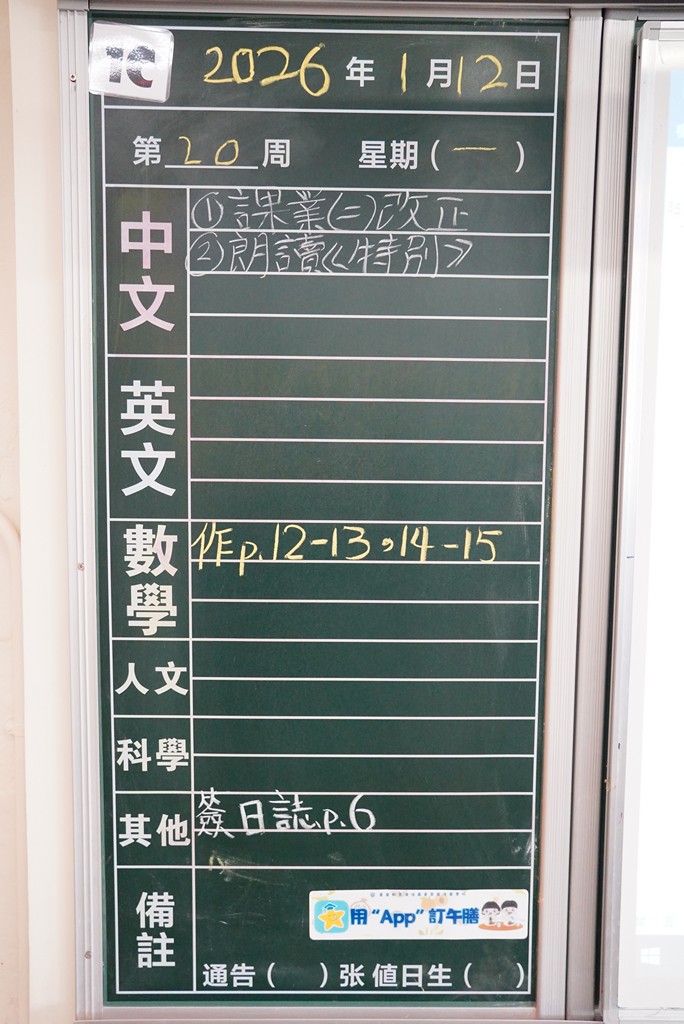 1C
2026 年 1 月 12 日
第 20 周 星期 ( 一 )
中文
①課業(二)改正
②朗讀《特別》
英文
數學
作p.12-13,14-15
人文
科學
其他
簽日誌p.6
備註
用 “App” 訂午膳
通告 ( ) 张 値日生 ( )